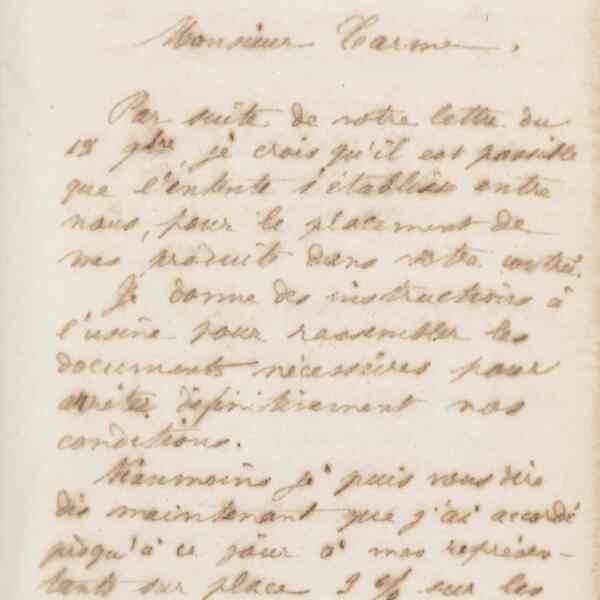 Monsieur Carme.
Par suite de votre lettre du
13 9bre, je crois qu'il est possible
que l'entente s'établisse entre
nous, pour le placement de
mes produits dans votre contrée.
Je donne des instructions à
l'usine pour rassembler les
documents nécessaires pour
arrêter définitivement nos
conditions.
Néanmoins je puis vous dire
dès maintenant que j'ai accordé
jusqu'à ce jour à mes représen-
tants sur place 3 % sur les